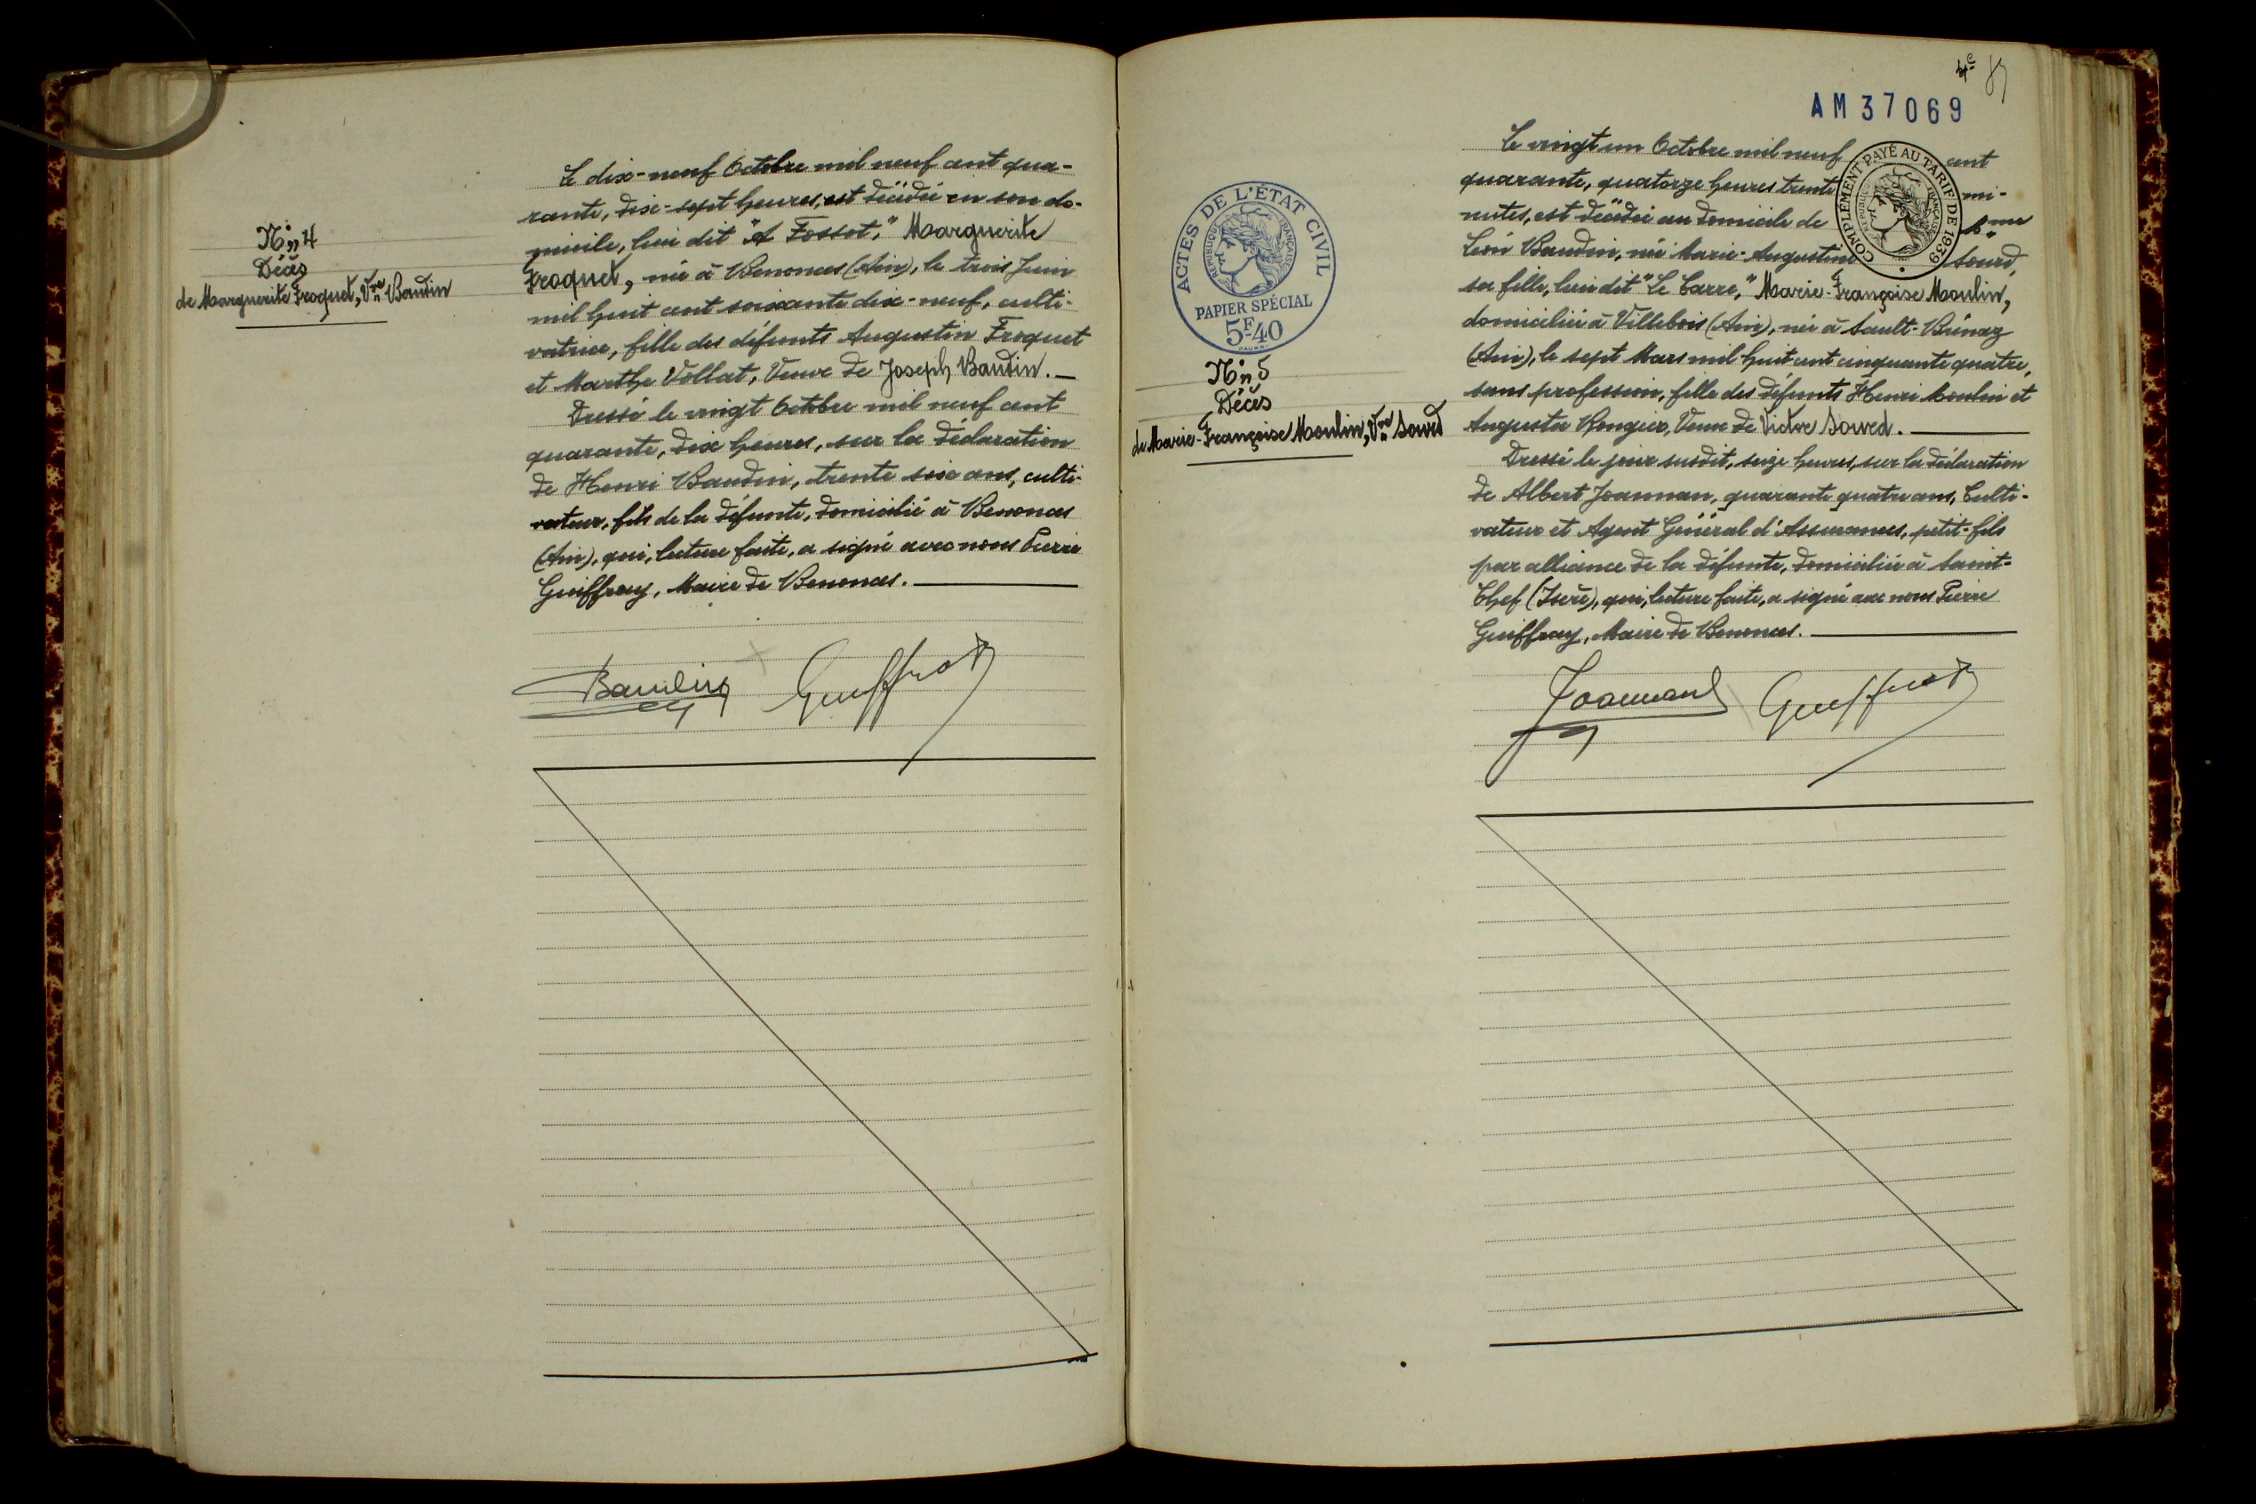 N° 4
Décès
de Marguerite Froquet, Vve Baudin
Le dix-neuf Octobre mil neuf cent qua-
rante, dix-sept heures, est décédée en son do-
micile, lieu dit "A Fossot," Marguerite
Froquet, née à Benonces (Ain), le trois Juin
mil huit cent soixante dix-neuf, culti-
vatrice, fille des défunts Augustin Froquet
et Marthe Vollat, Veuve de Joseph Baudin.
Dressé le vingt Octobre mil neuf cent
quarante, dix heures, sur la déclaration
de Henri Baudin, trente six ans, culti-
vateur, fils de la défunte, domicilié à Benonces
(Ain), qui, lecture faite, a signé avec nous Pierre
Guiffray, Maire de Benonces.
Baudin Guiffray
4e
AM37069
ACTES DE L'ÉTAT CIVIL
RÉPUBLIQUE FRANÇAISE
PAPIER SPÉCIAL
5F-40
COMPLÉMENT PAYÉ AU TARIF DE 1939
N° 5
Décès
de Marie-Françoise Moulin, Vve Sourd
Le vingt un Octobre mil neuf cent
quarante, quatorze heures trente mi-
nutes, est décédée au domicile de
Léon Baudin, née Marie-Augustine Sourd,
sa fille, lieu dit "Le Carre," Marie-Françoise Moulin,
domiciliée à Villebois (Ain), née à Sault-Brénaz
(Ain), le sept Mars mil huit cent cinquante quatre,
sans profession, fille des défunts Henri Moulin et
Augusta Rongier, Veuve de Victor Sourd.
Dressé le jour susdit, seize heures, sur la déclaration
de Albert Joannan, quarante quatre ans, Culti-
vateur et Agent Général d'Assurances, petit-fils
par alliance de la défunte, domicilié à Saint-
Chef (Isère), qui, lecture faite, a signé avec nous Pierre
Guiffray, Maire de Benonces.
Joannand Guiffray